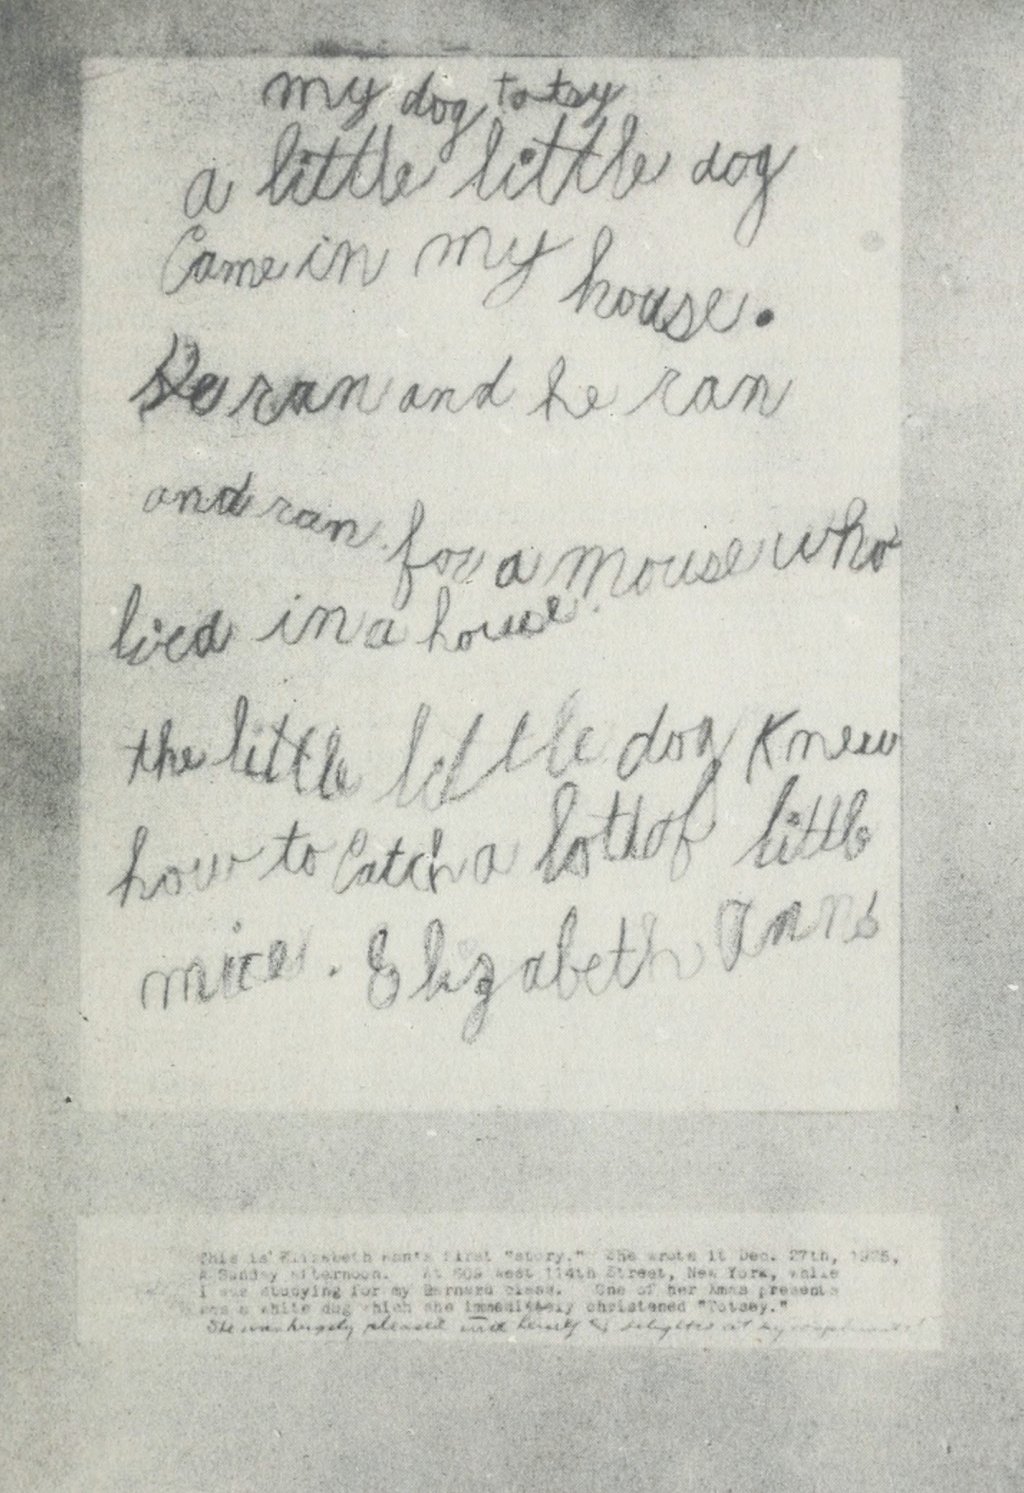 my dog totsy
a little little dog
Came in my house.
He ran and he ran
and ran for a mouse who
lied in a house.
the little little dog knew
how to Catch a lot of little
mice. Elizabeth Ann
This is Elizabeth Ann's first "story." She wrote it Dec. 27th, 1925,
A Sunday afternoon. At 509 West 114th Street, New York, while
I was studying for my Barnard class. One of her Xmas presents
was a white dog which she immediately christened "Totsey."
She was hugely pleased with herself & delighted at my